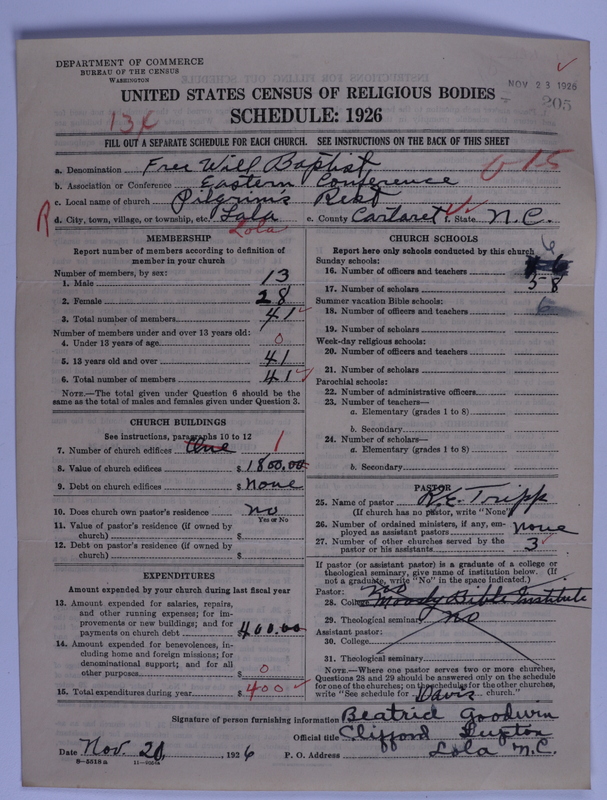 DEPARTMENT OF COMMERCE
BUREAU OF THE CENSUS
WASHINGTON
NOV 23 1926
205
UNITED STATES CENSUS OF RELIGIOUS BODIES
SCHEDULE: 1926
FILL OUT A SEPARATE SCHEDULE FOR EACH CHURCH. SEE INSTRUCTIONS ON THE BACK OF THIS SHEET
a. Denomination Free Will Baptist
b. Association or Conference Eastern Conference
c. Local name of church Pilgrim's Rest
d. City, town, village, or township, etc. Lola e. County Cartaret f. State N.C.
Lola
MEMBERSHIP
Report number of members according to definition of
member in your church
Number of members, by sex:
1. Male 13
2. Female 28
3. Total number of members 41
Number of members under and over 13 years old:
4. Under 13 years of age 0
5. 13 years old and over 41
6. Total number of members 41
NOTE.—The total given under Question 6 should be
same as the total of males and females given under Question 3.
CHURCH BUILDINGS
See instructions, paragraphs 10 to 12
7. Number of church edifices One 1
8. Value of church edifices $ 1800.00
9. Debt on church edifices $ None
10. Does church own pastor's residence No
Yes or No
11. Value of pastor's residence (if owned by
church) $
12. Debt on pastor's residence (if owned by
church) $
EXPENDITURES
Amount expended by your church during last fiscal year
13. Amount expended for salaries, repairs,
and other running expenses; for im-
provements or new buildings; and for
payments on church debt $ 400.00
14. Amount expended for benevolences, in-
cluding home and foreign missions; for
denominational support; and for all
other purposes $ 0
15. Total expenditures during year $ 400
CHURCH SCHOOLS
Report here only schools conducted by this church
Sunday schools: 6
16. Number of officers and teachers 6
17. Number of scholars 58
Summer vacation Bible schools:
18. Number of officers and teachers
19. Number of scholars
Week-day religious schools:
20. Number of officers and teachers
21. Number of scholars
Parochial schools:
22. Number of administrative officers
23. Number of teachers—
a. Elementary (grades 1 to 8)
b. Secondary
24. Number of scholars—
a. Elementary (grades 1 to 8)
b. Secondary
PASTOR
25. Name of pastor R.E. Tripp
(If church has no pastor, write "None")
26. Number of ordained ministers, if any, em-
ployed as assistant pastors None
27. Number of other churches served by the
pastor or his assistants 3
If pastor (or assistant pastor) is a graduate of a college or
theological seminary, give name of institution below. (If
not a graduate, write "No" in the space indicated.)
Pastor: No
28. College Moody Bible Institute
29. Theological seminary No
Assistant pastor:
30. College
31. Theological seminary
NOTE.—Where one pastor serves two or more churches,
Questions 28 and 29 should be answered only on the schedule
for one of the churches; on the schedules for the other churches,
write "See schedule for Davis church."
Signature of person furnishing information Beatrice Goodwin
Official title Clifford Lupton
Date Nov. 20, 1926 P. O. Address Lola N.C.
8—5518 a